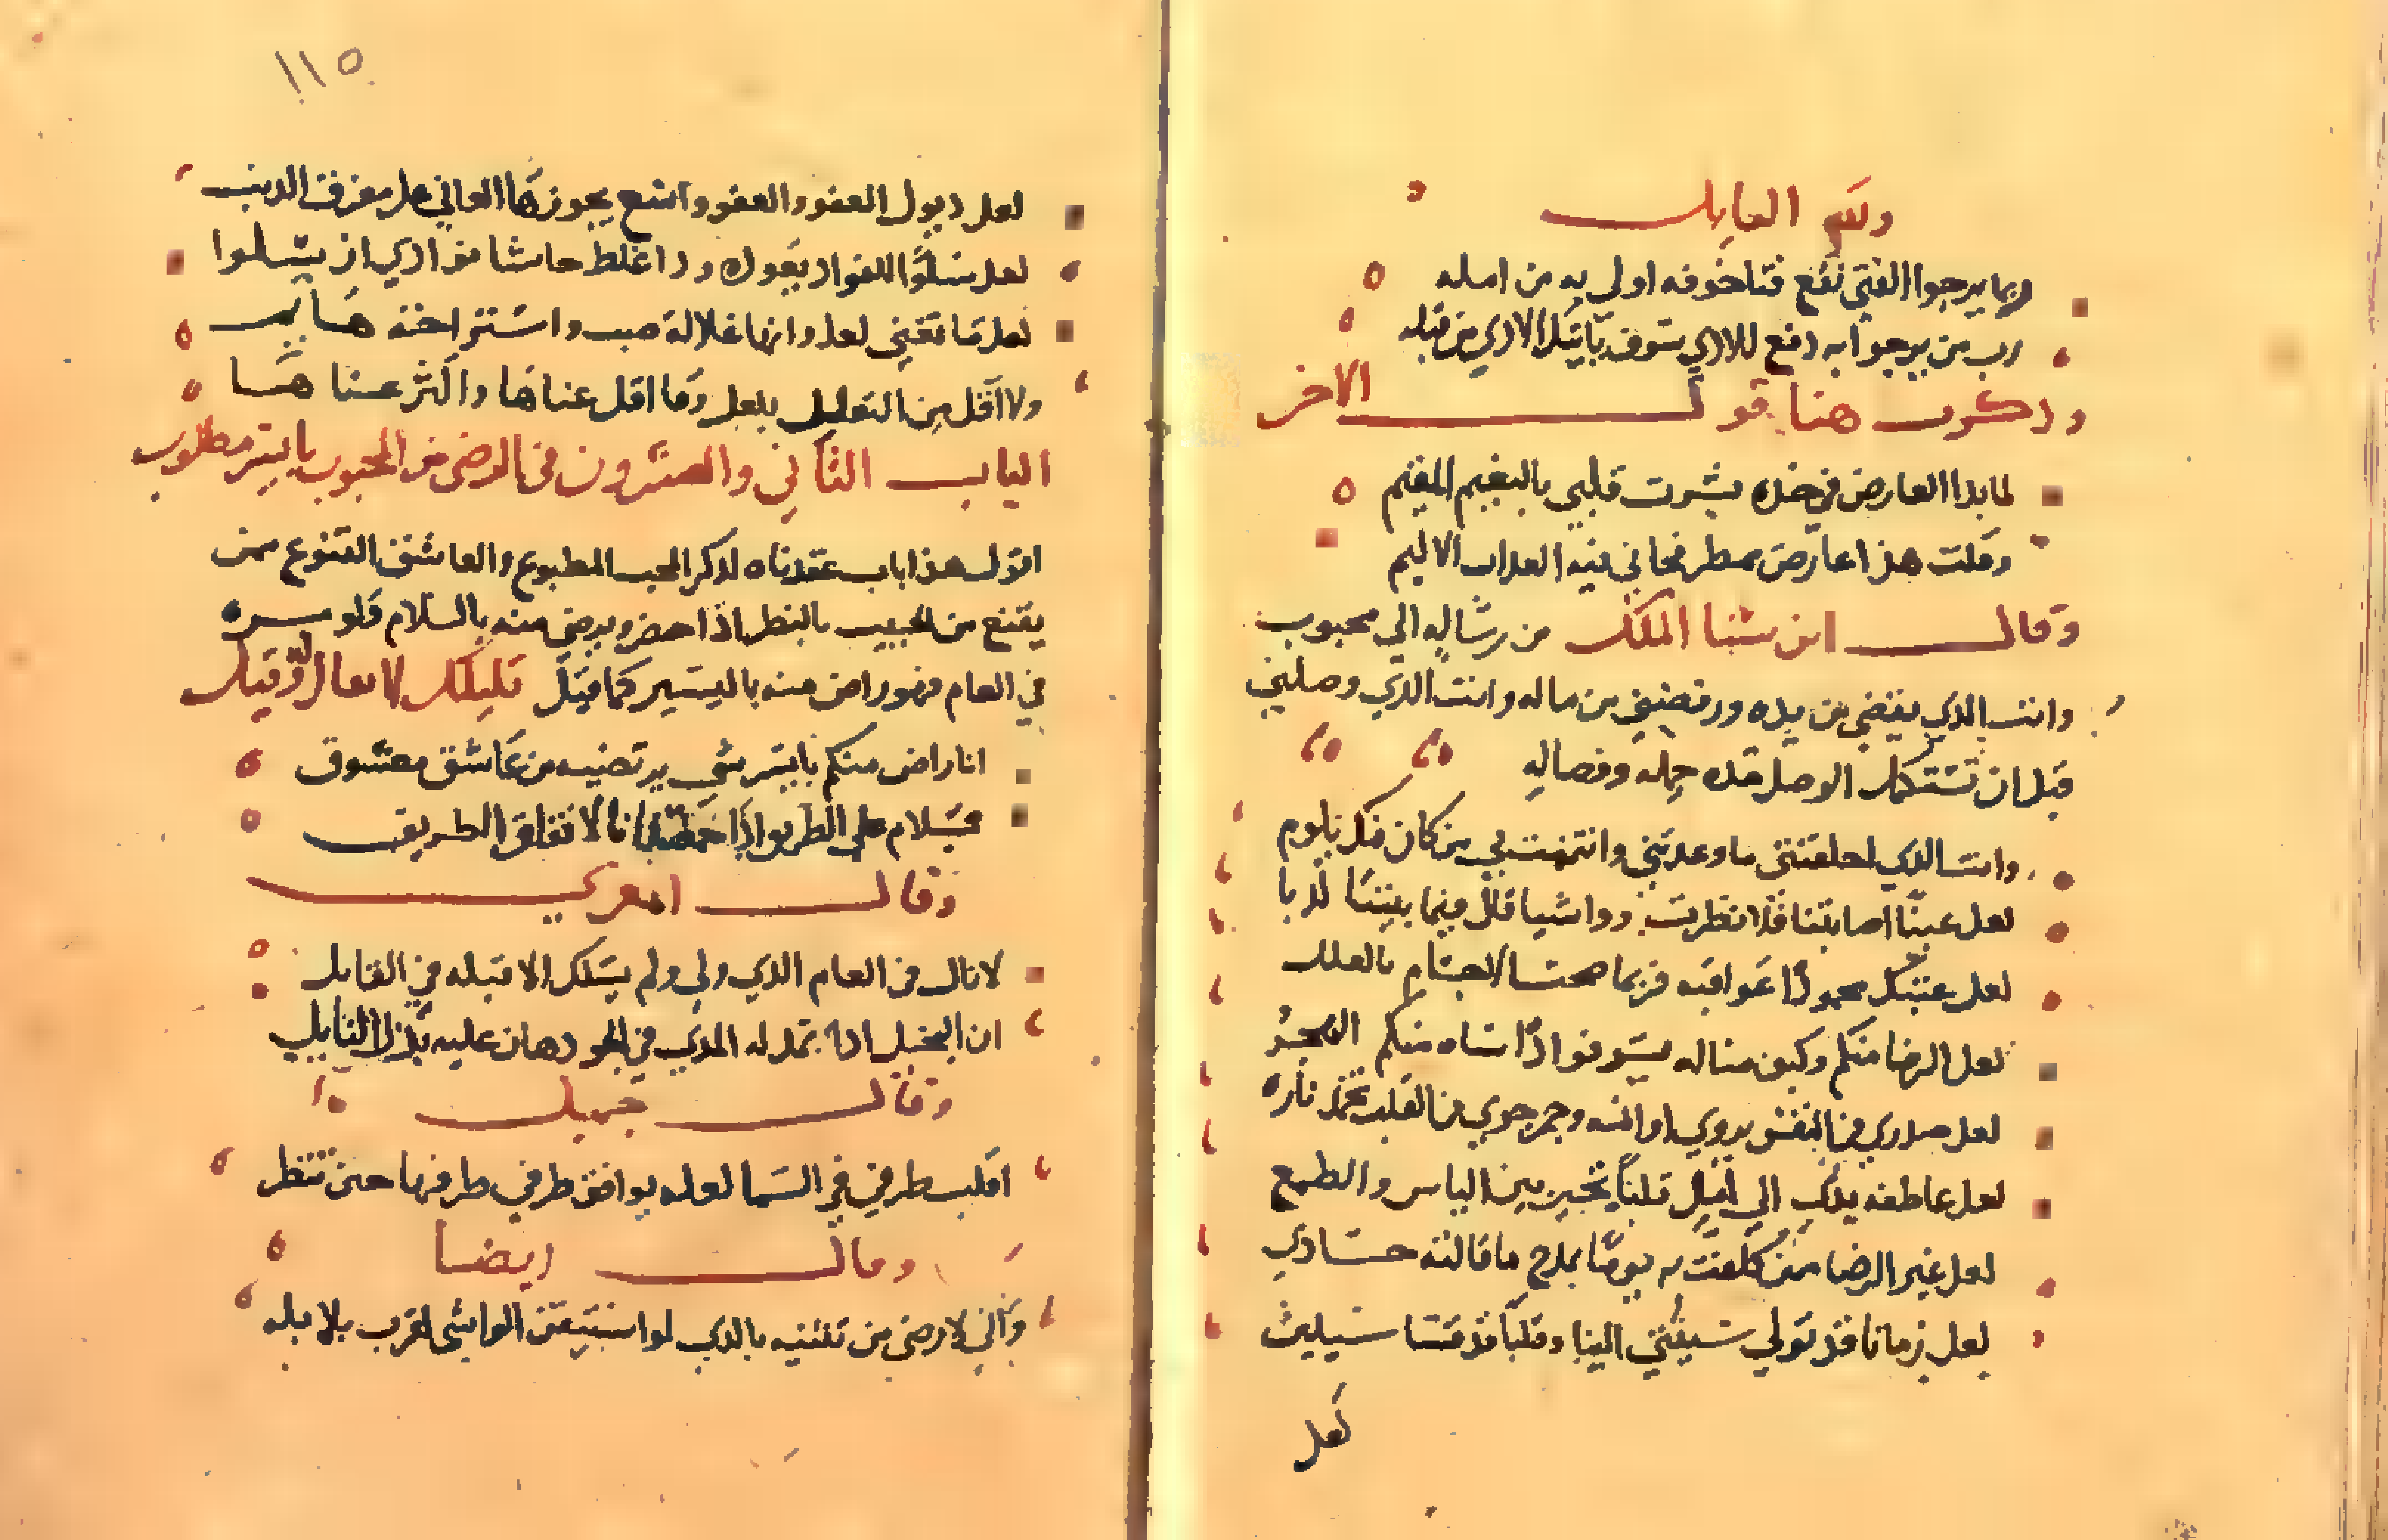 ولله القايل
ربما يرجوا الفتى نفع فتا خوفه اولى به من امله
رب من يرجوا به دفع للاذي سوف ياتيك الاذي من قبله
وذكرت هنا قول الاخر
لما بدا العارض في خده بشرت قلبي بالنعيم المقيم
وقلت هذا عارض ممطر فجاني فيه العذاب الاليم
وقال ابن سنا الملك من رساله الي محبوب
وانت الذي من يده ورفضني من ماله وانت الذي وصلني
قبل ان تستكمل الوصل مده حمله وفصاله
وانت الذي اخلفتني ما وعدتني واشمت بي من كان فيك يلوم
لعل عينا اصابتنا فلا نظرت وواشيا قال فيما بيننا
لعل عتبك محمودا عواقبه فربما صحت الاجسام بالعلل
لعل الرضا منكم وكيف مناله
لعل صدي في النفس يروي اوامه وجمر جوي في القلب تخمد ناره
لعل عاطفه يدك الي امل قلبا تحير بين الياس والطمع
لعل غير الرضا ممن كلفت به يوما يملح ما قالته حسادي
لعل زمانا قد تولي سينثني الينا وقلبا قد قسا سيلين
لعل
١١٥
لعل ديول العفو والعفو واسع يجوز بها العاني علي مغرق الدنب
لعل سلوا للفواد يعوده وذا غلط حاشا فوادي ان يسلوا
لعل ما تغني لعل وانها علالة صب واستراحة هايم
ولا اقل من التعليل بلعل وما اقل عناها واكثر عنا ها
الباب الثاني والعشرون في الرضى من المحبوب بايسر مطلوب
اقول هذا باب عقدناه لذكر المحب المطبوع والعاشق القنوع ممن
يقنع من الحبيب بالنظر اذا حضر ويرضى منه بالسلام ولو مره
في العام فهو راض منه باليسير كما قيل قليلك لا يقال له قليل
انا راض منكم بايسر شي يرتضيه من عاشق معشوق
بسلام علي الطريق اذا ما جمعتنا بالاتفاق الطريق
وقال المعري
لاناك في العام الذي ولي ولم يسلك الا قبله في القابل
ان البخيل اذا تمد له المدي في الجود هان عليه بذل النايل
وقال جميل
اقلب طرفي في السما لعله يوافق طرفي طرفها حين تنظر
وقال ايضا
واني لارضى من بثينه بالذي لو استيقن الواشي لقرت بلابله